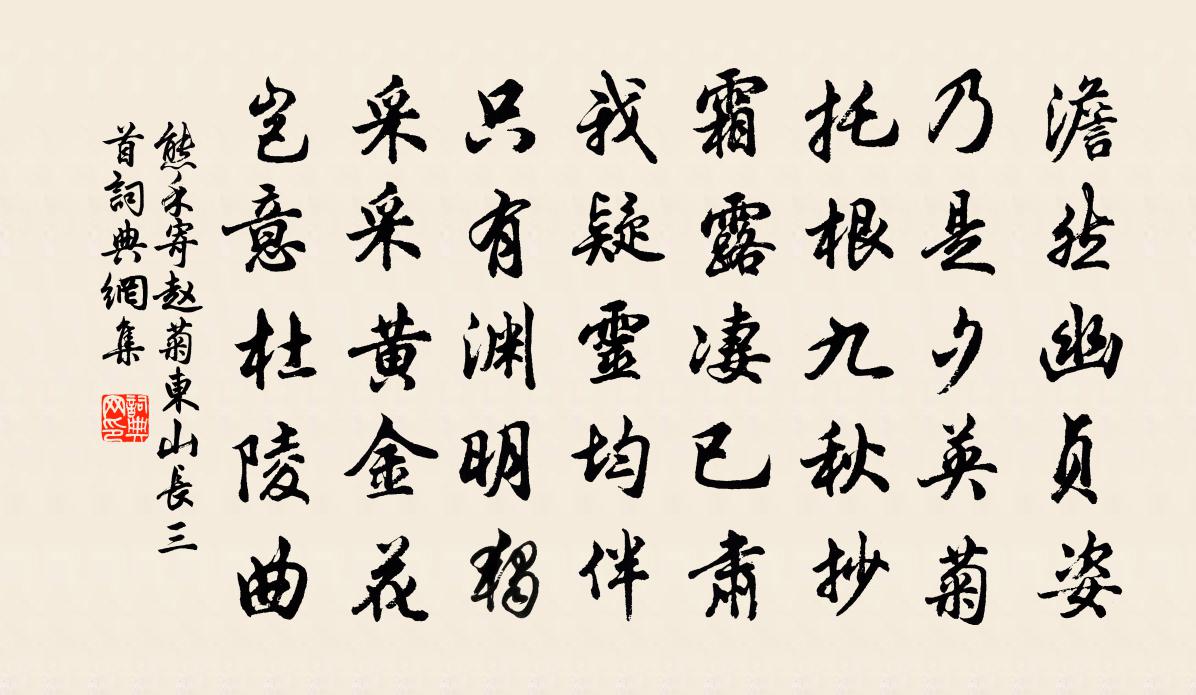 澹然幽貞姿
乃是夕英菊
托根九秋抄
霜露凄已肅
我疑靈均伴
只有渊明獨
采采黃金花
岂意杜陵曲
熊禾寄赵菊東山長三
首詞典網集
詞典网印